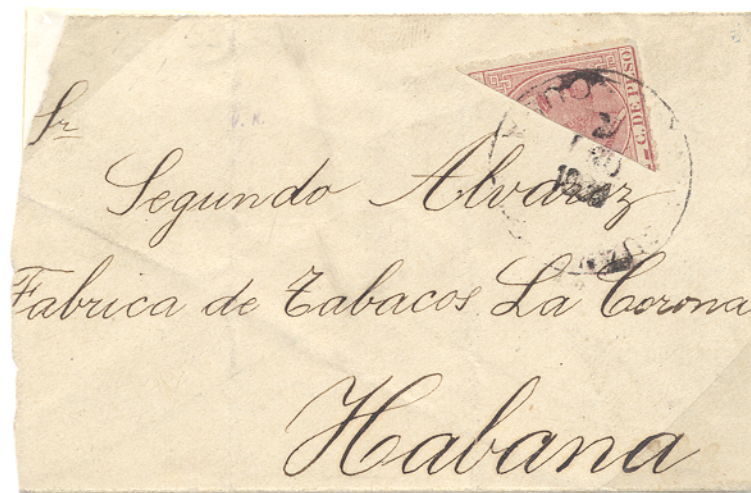 C. DE PESO
Sr
Segundo Alvarez
Fabrica de Tabacos La Corona
Habana